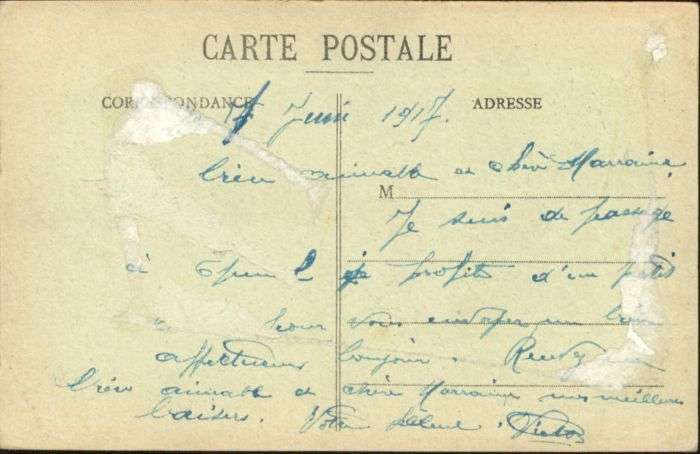 CARTE POSTALE
CORRESPONDANCE
ADRESSE
7 Juin 1917.
bien aimable et chère Marraine
M
Je suis de passage
à je profite d'un petit
pour vous envoyer un bien
affectueux bonjour.
bien aimable et chère Marraine mes meilleurs
baisers. Votre filleul. Victor